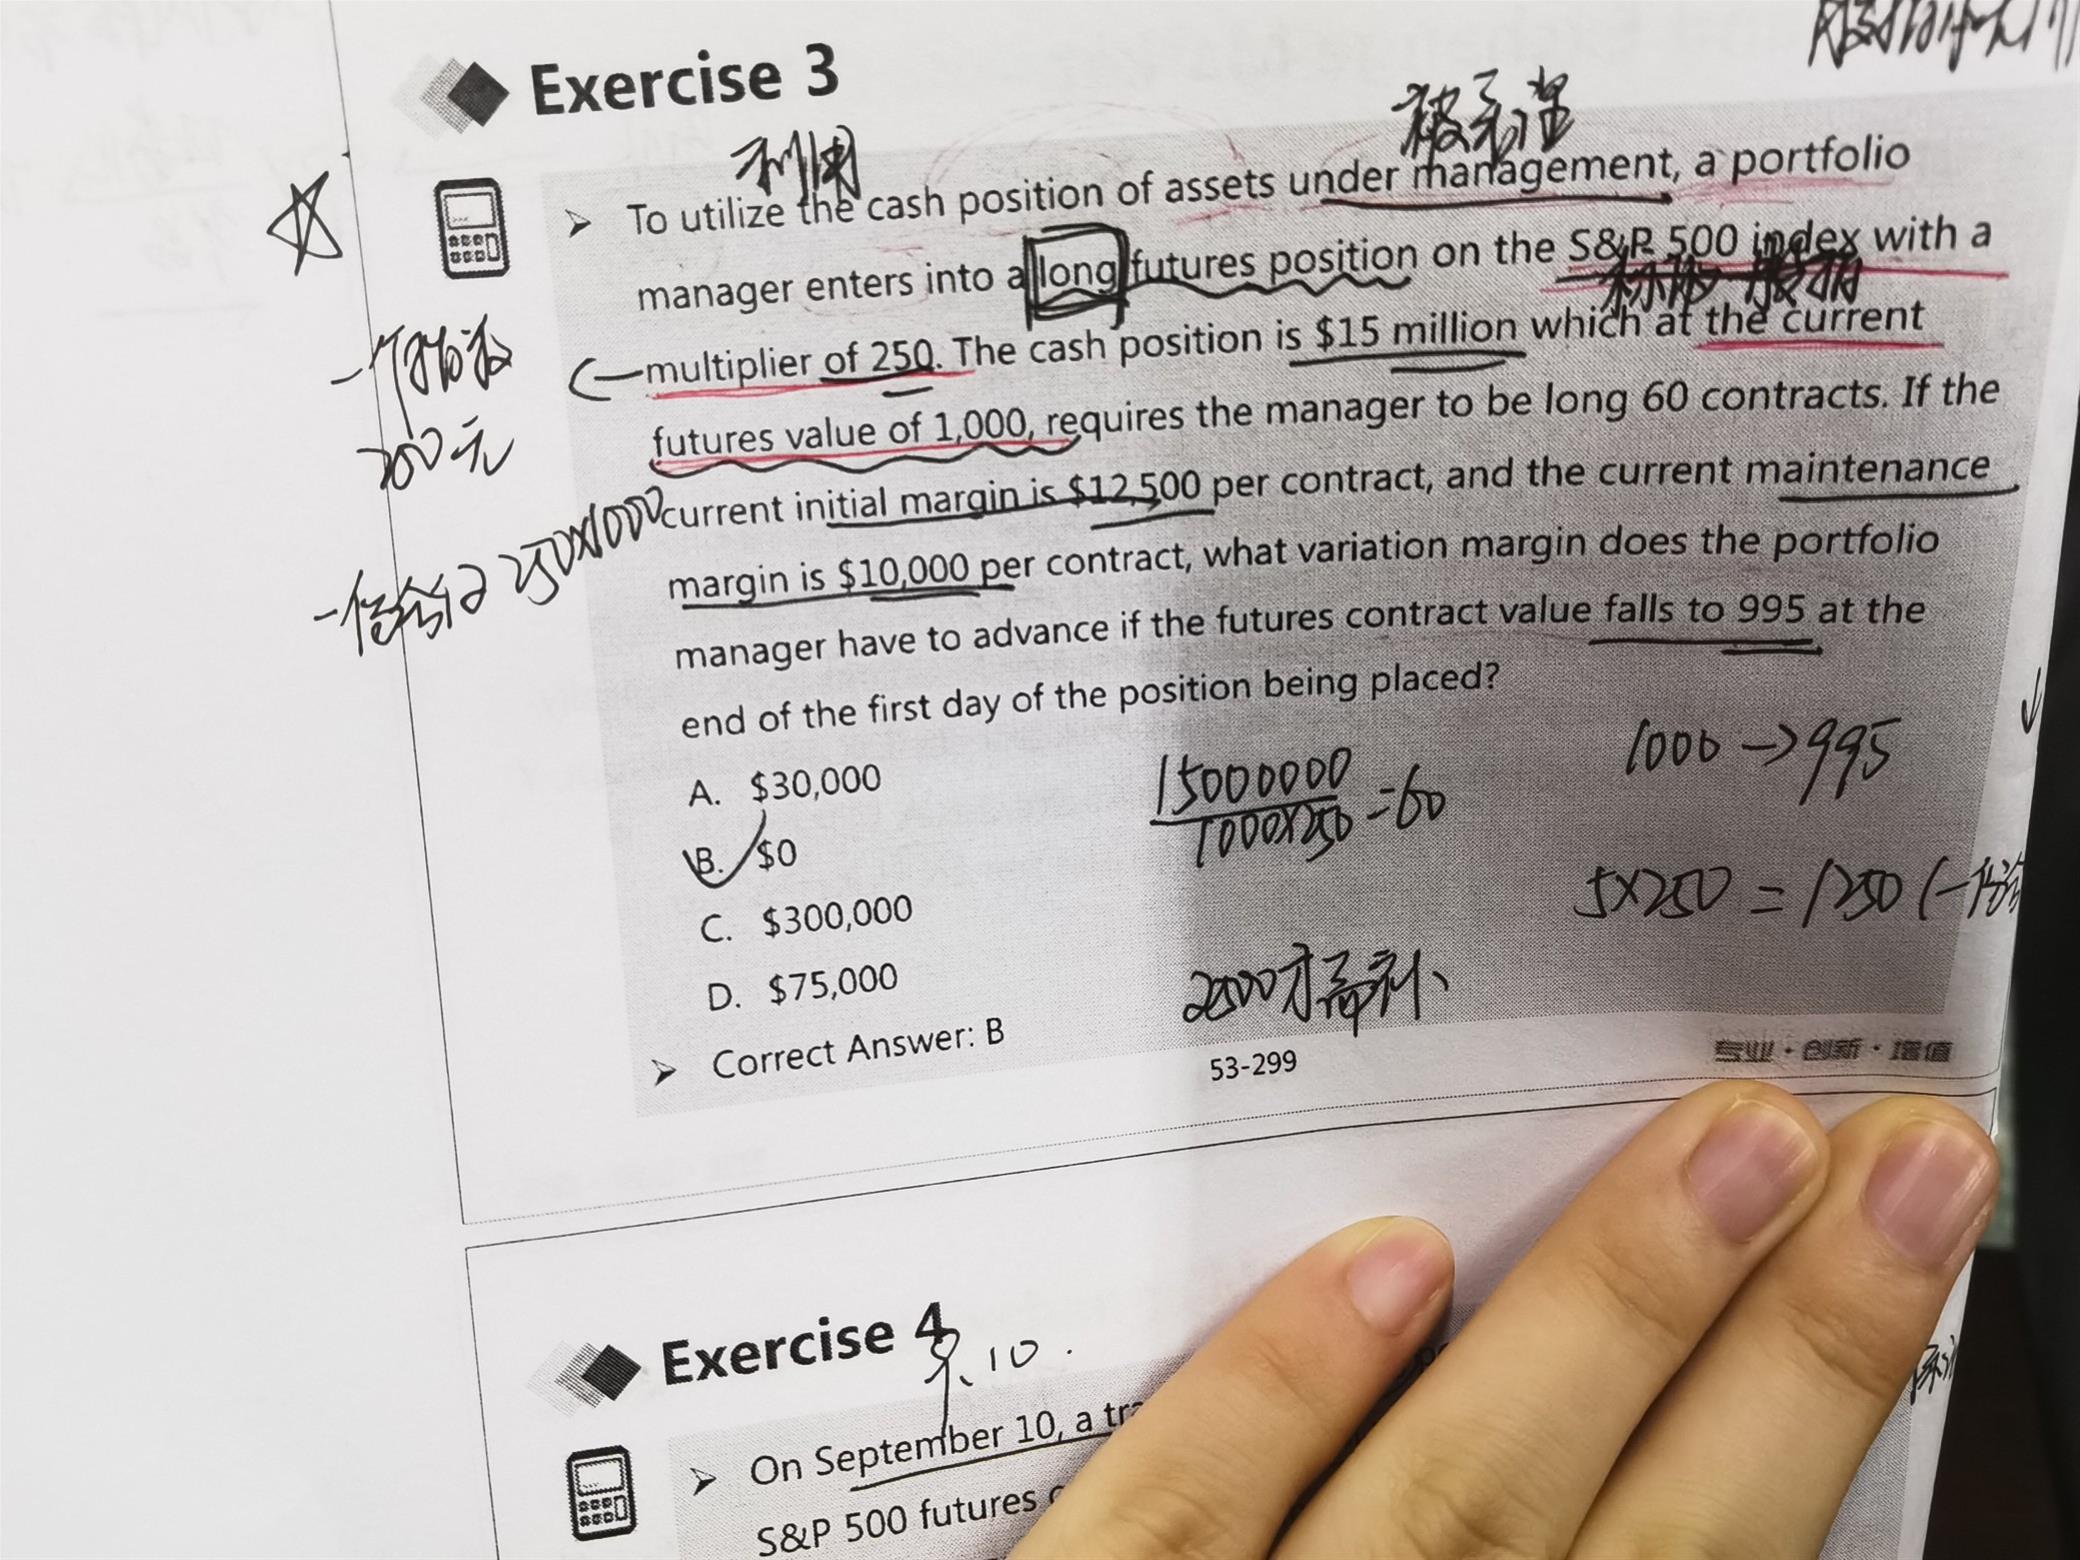 Exercise 3
利用
被管理
To utilize the cash position of assets under management, a portfolio
manager enters into a long futures position on the S&P 500 index with a
multiplier of 250. The cash position is $15 million which at the current
futures value of 1,000, requires the manager to be long 60 contracts. If the
current initial margin is $12,500 per contract, and the current maintenance
一份合约 250×1000
margin is $10,000 per contract, what variation margin does the portfolio
manager have to advance if the futures contract value falls to 995 at the
end of the first day of the position being placed?
1000 → 995
A. $30,000
15000000
1000×250 = 60
B. $0
5×250 = 1250
C. $300,000
D. $75,000
2500才
Correct Answer: B
53-299
专业·创新·增值
Exercise 4
10.
On September 10, a
S&P 500 futures